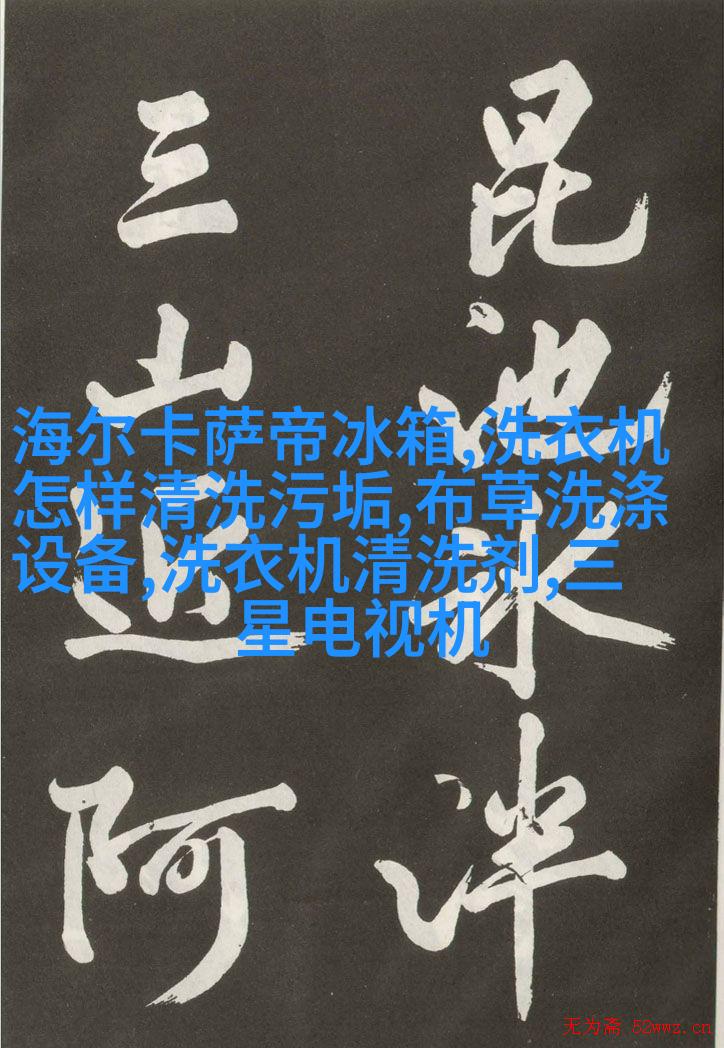 昆池泮
三山阿
海尔卡萨帝冰箱,洗衣机
怎样清洗污垢,布草洗涤
设备,洗衣机清洗剂,三
星电视机
无为斋 52wwz.cn